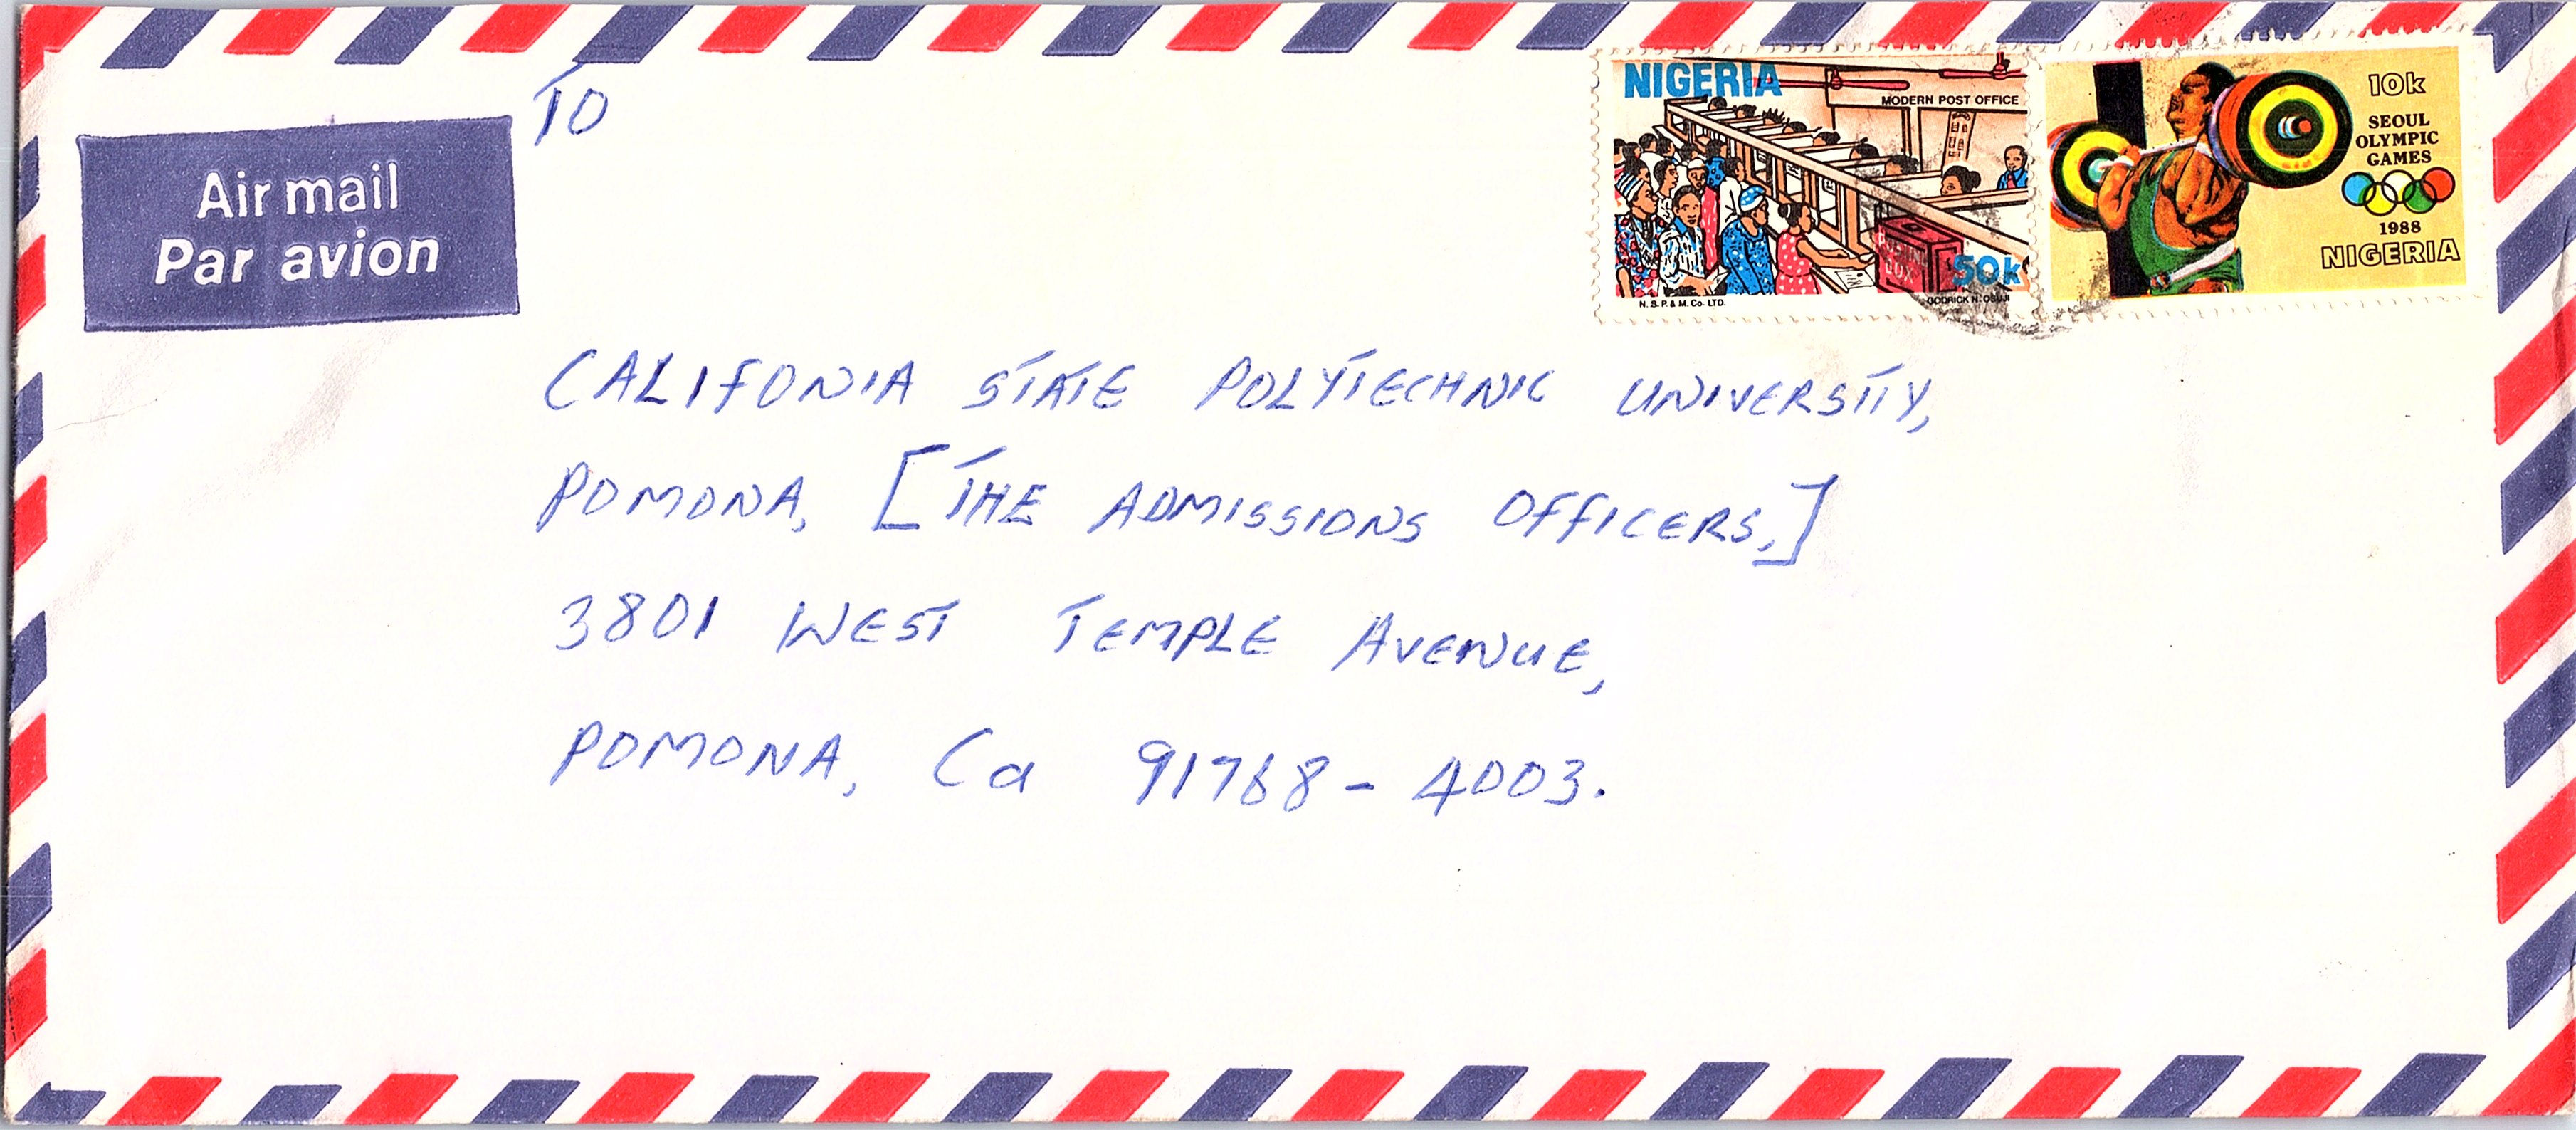 TO
Air mail
Par avion
NIGERIA
MODERN POST OFFICE
50k
N.S.P.& M.Co. LTD.
GODRICK N. OSUJI
10k
SEOUL
OLYMPIC
GAMES
1988
NIGERIA
CALIFONIA STATE POLYTECHNIC UNIVERSITY,
POMONA, [THE ADMISSIONS OFFICERS,]
3801 WEST TEMPLE AVENUE,
POMONA, Ca 91768-4003.